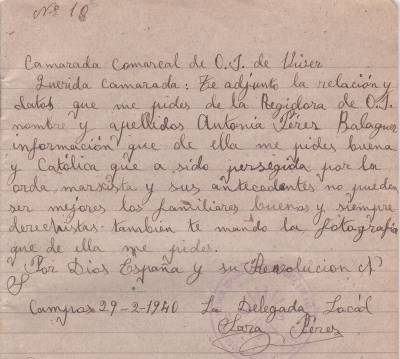 Nº 18
Camarada Comarcal de O.J. de Viver
Querida Camarada: Te adjunto la relación y
datos que me pides de la Regidora de O.J.
nombre y apellidos Antonia Pérez Balaguer
información que de ella me pides buena
y Católica que a sido persegida por la
orda marsista y sus antecedentes no pueden
ser mejores los familiares buenos y siempre
derechistas también te mando la fotografia
que de ella me pides.
Por Dios España y su Revolucion
Campos 29-2-1940 La Delegada Locál
Sara Pérez